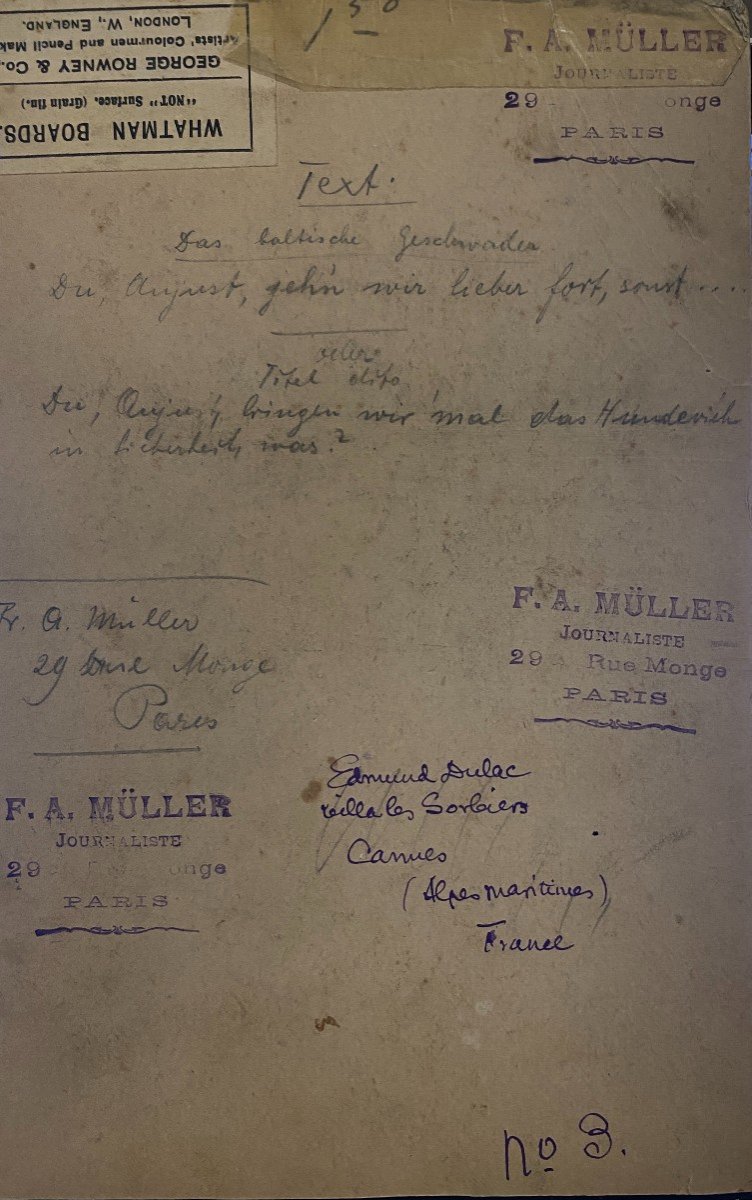 1 50
F. A. MÜLLER
JOURNALISTE
29 onge
PARIS
LONDON, W., ENGLAND.
Artists' Colourmen and Pencil Mak
GEORGE ROWNEY & Co.,
"NOT" Surface. (Grain fin.)
WHATMAN BOARDS.
Text.
Das baltische Geschwader
Du, August, geh'n wir lieber fort, sonst ....
oder
Titel dito
Du, August, bringen wir 'mal das Hundevieh
in Sicherheit, was?
Fr. A. Müller
29 Rue Monge
Paris
F. A. MÜLLER
JOURNALISTE
29 Rue Monge
PARIS
F. A. MÜLLER
JOURNALISTE
29 onge
PARIS
Edmund Dulac
Villa les Sorbiers
Cannes
(Alpes maritimes)
France
No 3.